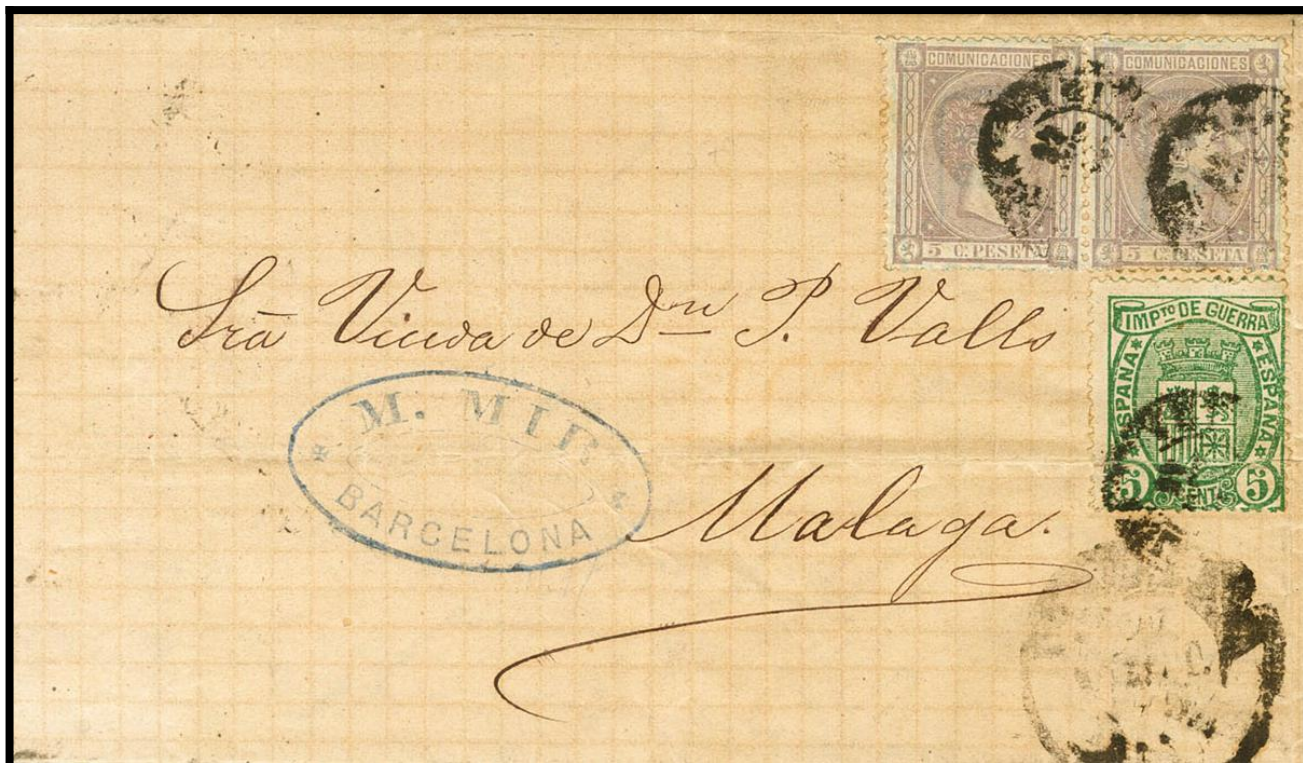 COMUNICACIONES COMUNICACIONES
5 C. PESETA 5 C. PESETA
IMPTO DE GUERRA
ESPAÑA ESPAÑA
5 CENT 5
Sra Viuda de Dn P. Valls
M. MIR
BARCELONA
Malaga.